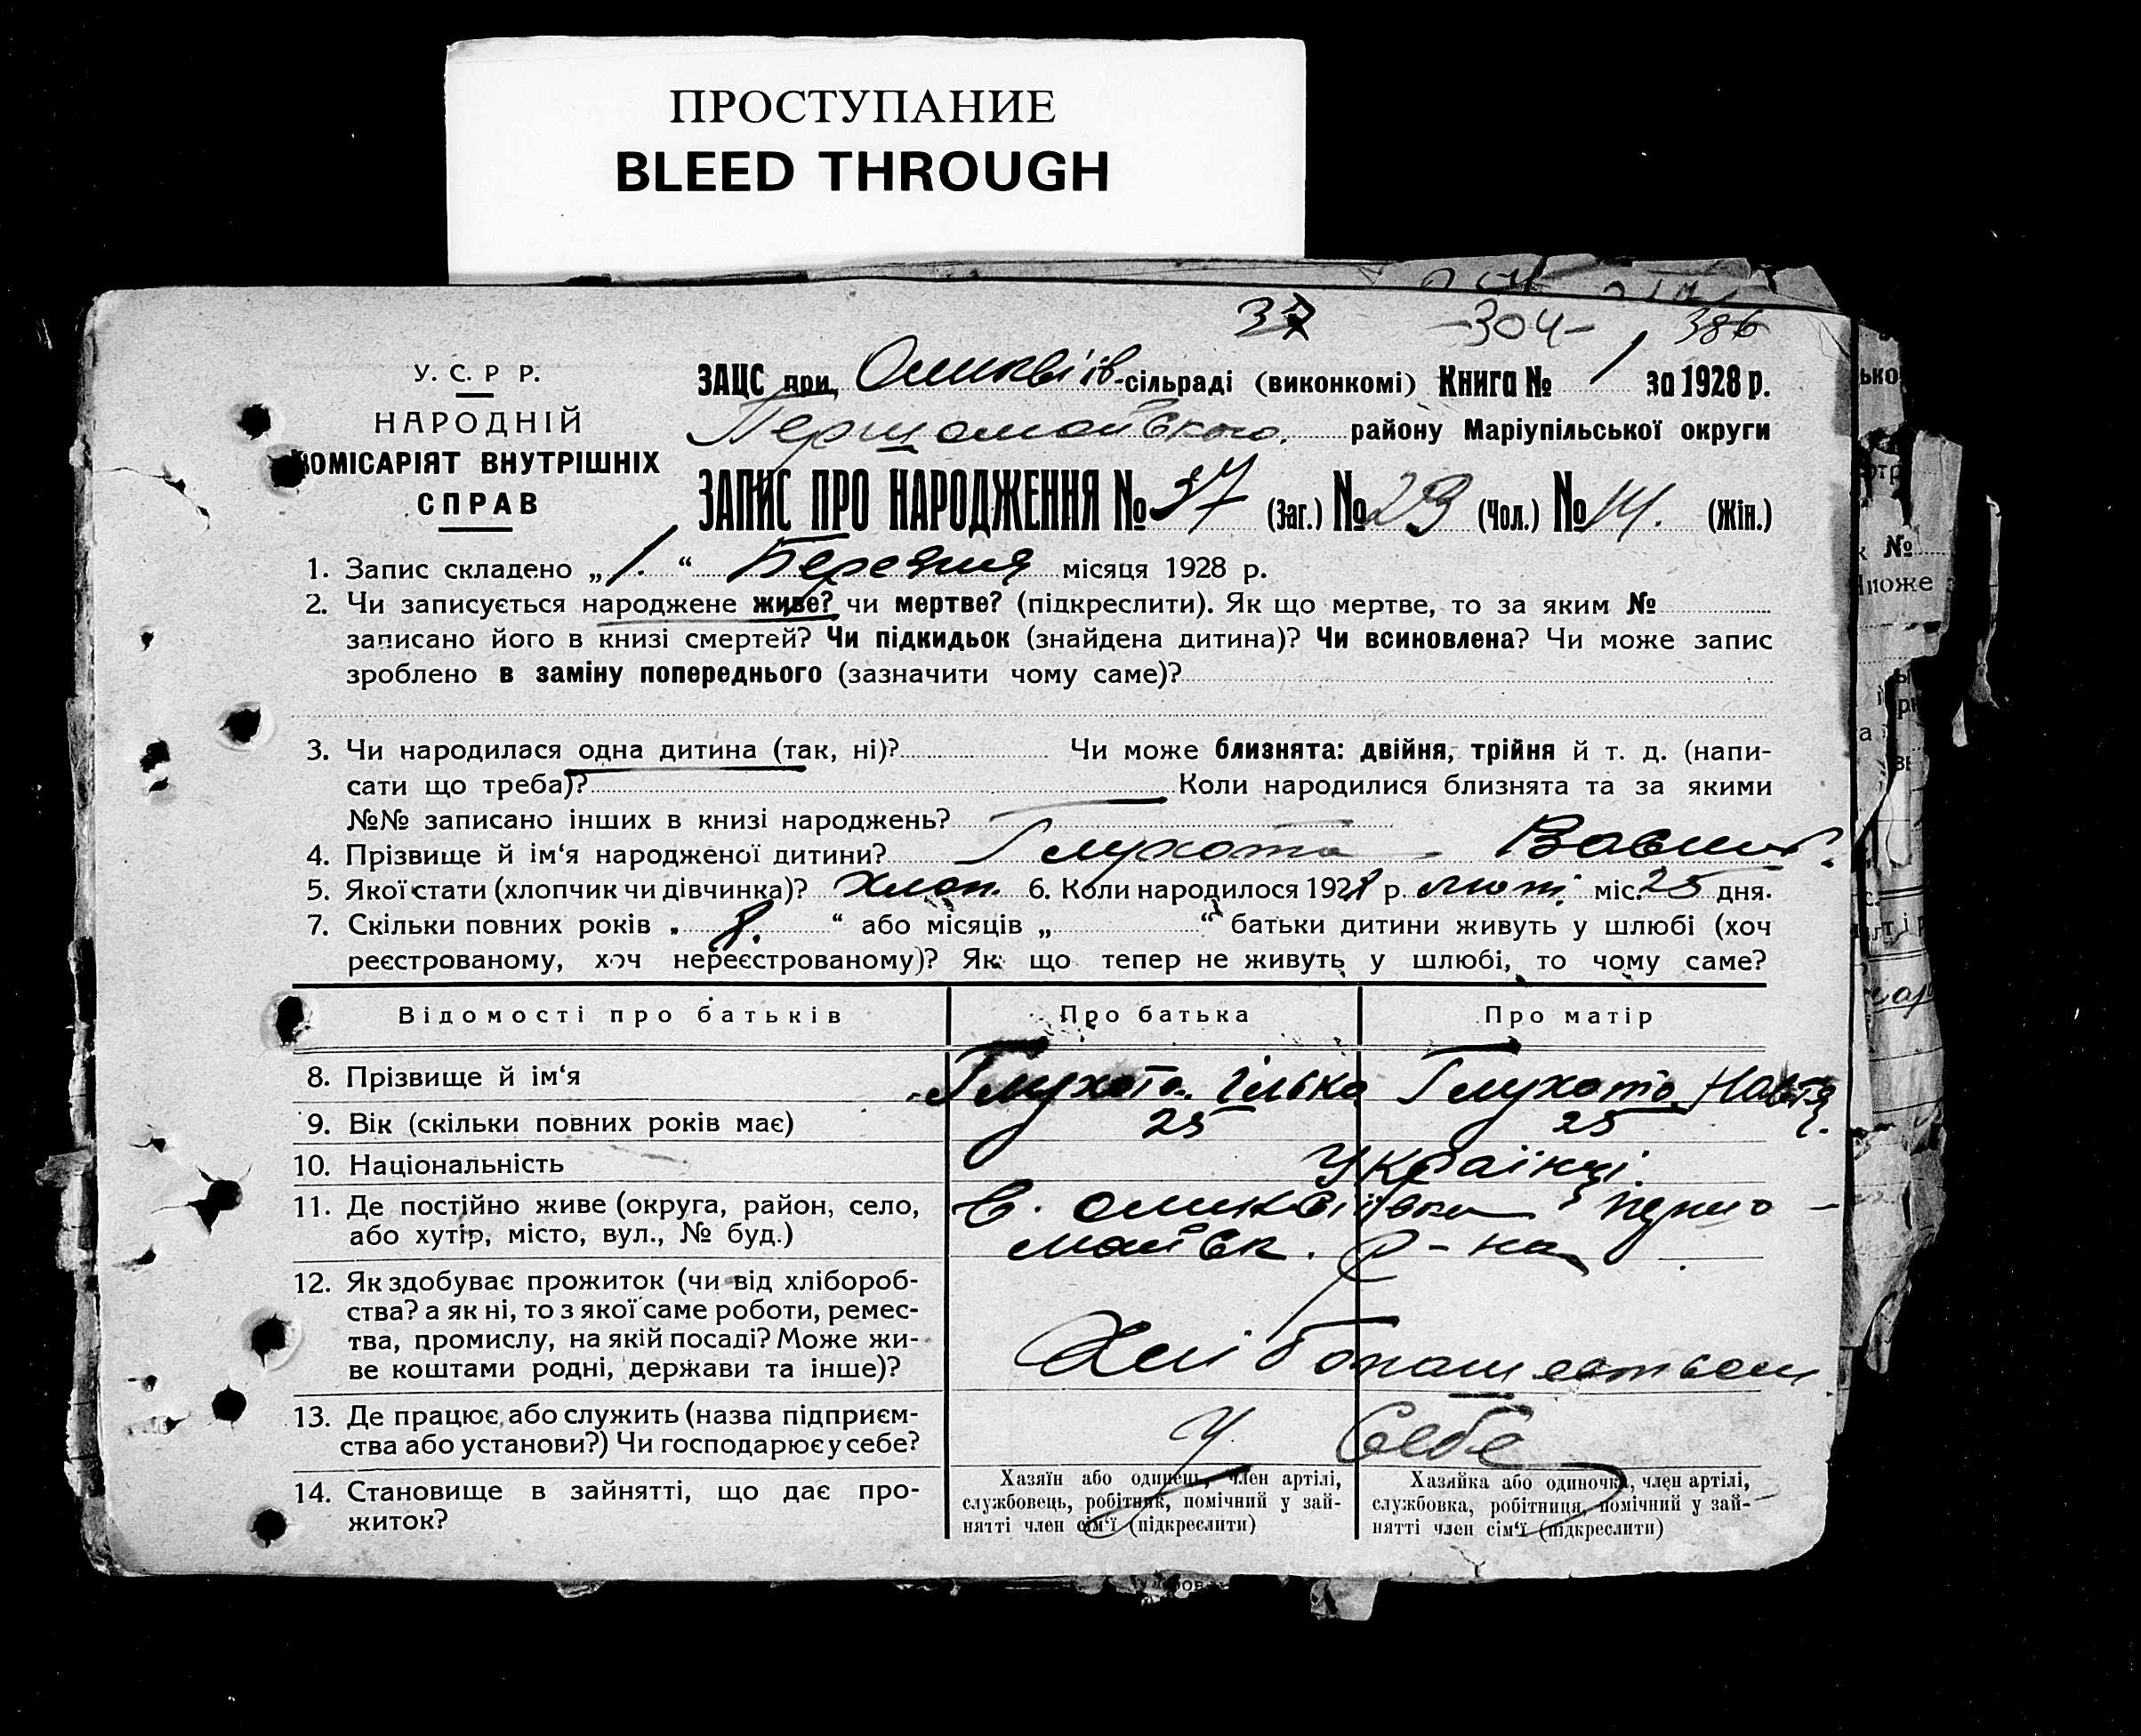 ПРОСТУПАНИЕ
BLEED THROUGH
37 -304- 386
У. С. Р Р.
НАРОДНІЙ
КОМІСАРІЯТ ВНУТРІШНІХ
СПРАВ
ЗАЦС при -сільраді (виконкомі) Книга № 1 за 1928 р.
Першомайського району Маріупільської округи
ЗАПИС ПРО НАРОДЖЕННЯ № 37 (Заг.) № 23 (Чол.) № 14. (Жін.)
1. Запис складено „1.“ Березня місяця 1928 р.
2. Чи записується народжене живе? чи мертве? (підкреслити). Як що мертве, то за яким №
записано його в книзі смертей? Чи підкидьок (знайдена дитина)? Чи всиновлена? Чи може запис
зроблено в заміну попереднього (зазначити чому саме)?
3. Чи народилася одна дитина (так, ні)? Чи може близнята: двійня, трійня й т. д. (напи-
сати що треба)? Коли народилися близнята та за якими
№№ записано інших в книзі народжень?
4. Прізвище й ім‘я народженої дитини? Глухота
5. Якої стати (хлопчик чи дівчинка)? Хлоп. 6. Коли народилося 1928 р. люті міс. 25 дня.
7. Скільки повних років „8.“ або місяців „ “ батьки дитини живуть у шлюбі (хоч
реєстрованому, хоч нереєстрованому)? Як що тепер не живуть у шлюбі, то чому саме?
Відомості про батьків Про батька Про матір
8. Прізвище й ім‘я Глухота Ілько Глухота
9. Вік (скільки повних років має) 25 25
10. Національність Українці
11. Де постійно живе (округа, район, село, с.
або хутір, місто, вул., № буд.) майськ. р-на
12. Як здобуває прожиток (чи від хлібороб-
ства? а як ні, то з якої саме роботи, ремес-
тва, промислу, на якій посаді? Може жи-
ве коштами родні, держави та інше)? Хлібопашеством
13. Де працює або служить (назва підприєм-
ства або установи?) Чи господарює у себе? У Себе
14. Становище в зайнятті, що дає про-
житок?
Хазяїн або одинець, член артілі,
службовець, робітник, помічний у зай-
нятті член сім‘ї (підкреслити)
Хазяйка або одиночка, член артілі,
службовка, робітниця, помічний у зай-
нятті член сім‘ї (підкреслити)